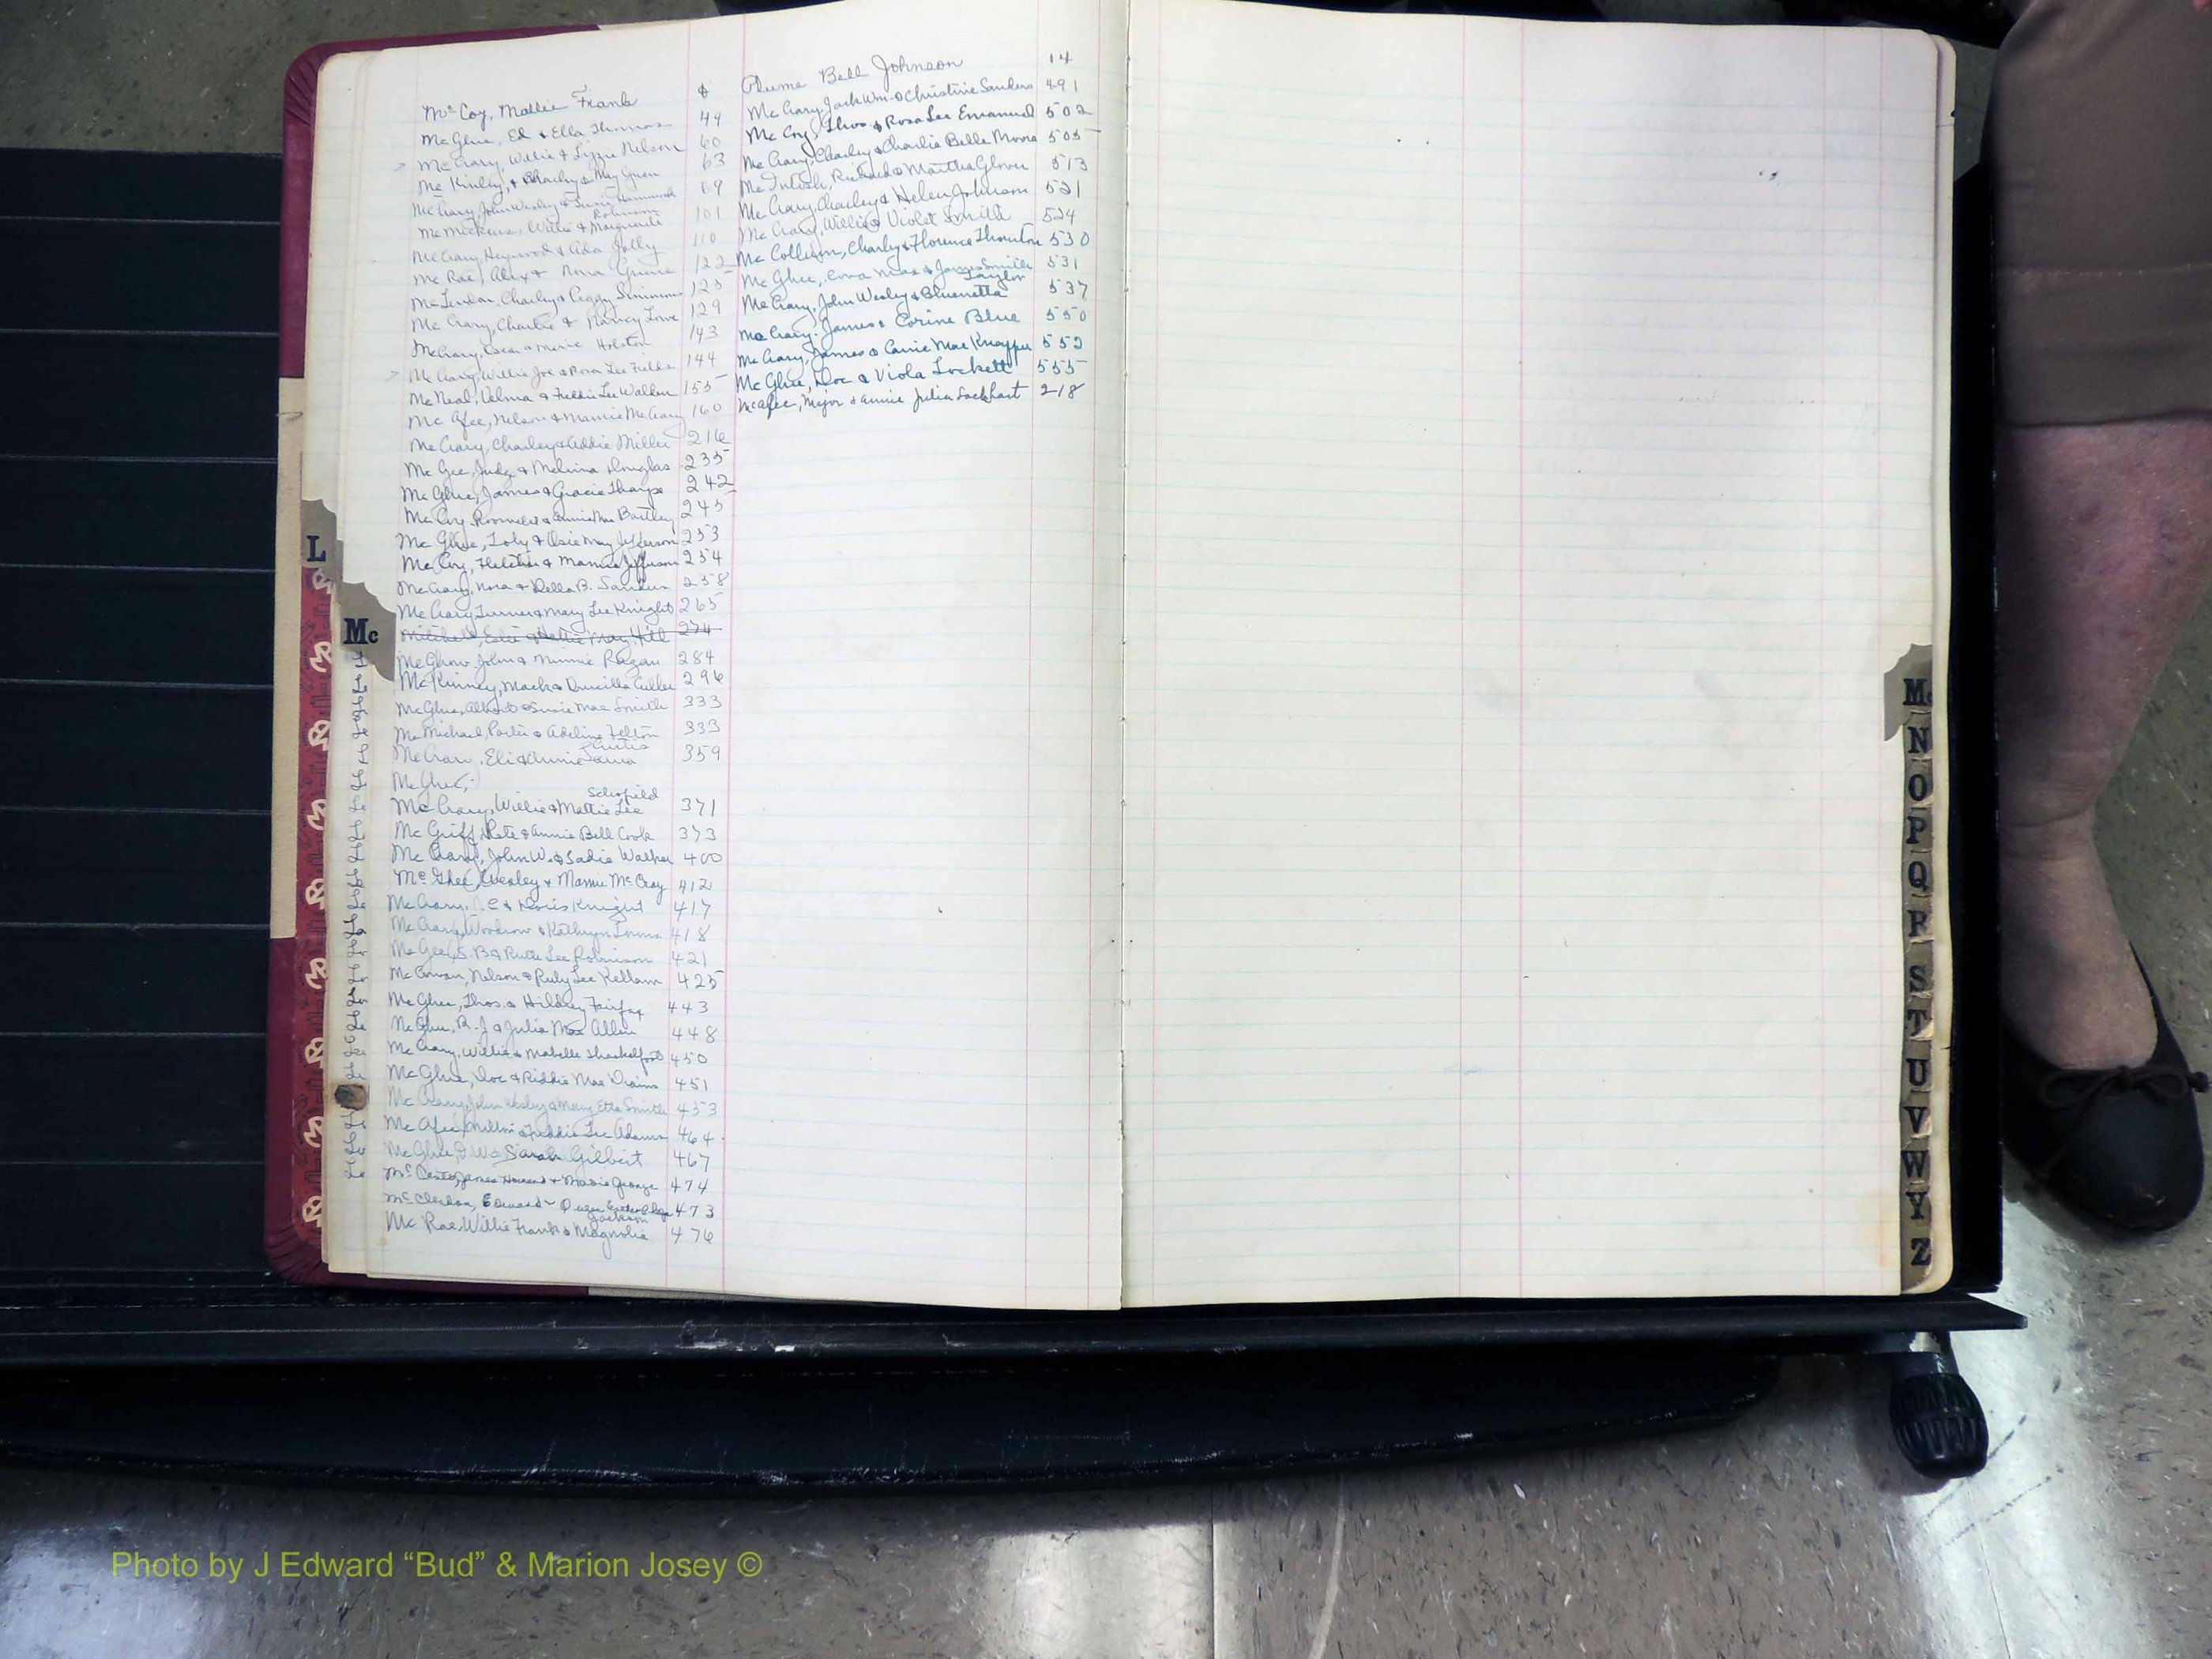 McCoy, Mattie Frank
McGhee, Ed & Ella Thomas 49
McCrary, Willie & Lizzie Nelson 60
McKinley, & Charley & May Green 63
McCrary, John Wesley & Susie Hammond 69
Robinson
McMickens, Willie & Marguerite 101
McCrary, Heywood & Ada Jolly 110
McRae, Alex & Nora Greene 122
McLendon, Charley & Peggy Simmons 125
McCrary, Charlie & Nancy Lowe 129
McCrary, Oscar & Marie Holston 143
McCrary, Willie Joe & Rosa Lee Fields 144
McNeal, Velma & Freddie Lee Walton 155
McAfee, Nelson & Mamie McCrary 160
McCrary, Charley & Addie Miller 216
McGee, Judge & Melvina Douglas 235
McGhee, James & Gracie Tharpe 242
McCoy, Roosevelt & Annie Mae Bartley 245
McGhee, Toby & Osie May Jefferson 253
McCoy, Fletcher & Mamie Jefferson 254
McCrary, Nora & Della B. Sanders 258
McCrary, Turner & Mary Lee Knight 265
Mitchell, & Hattie May Hill 274
John & Minnie Ragan 284
McKinney, Mack & Drucilla Culler 296
McGhee, Albert & Susie Mae Smith 333
McMichael, Porter & Adeline Felton 333
Curtis
McCrary, Eli & Annie Laura 359
McGhee,
Schofield
McCrary, Willie & Mattie Lee 371
McGriff, Pete & Annie Bell Cook 373
McCrary, John W. & Sadie Walker 400
McGhee, Wesley & Mamie McCray 412
McCrary, & Doris Knight 417
McCrary, Woodrow & Kathryn 418
McGee, S. B & Ruth Lee Robinson 421
McCowan, Nelson & Ruby Lee Kellam 425
McGhee, Thos. & Hildrey Fairfax 443
McGhee, R. J & Julia Mae Allen 448
McCrary, Willie & Mabelle Shackelford 450
McGhee, Doc & Riddie Mae Drains 451
McCrary, John Wesley & Mary Etta Smith 453
McAfee, Milton & Freddie Lee Adams 464
McGhee, & Sarah Gilbert 467
James Howard & Marie George 474
McClendon, Edward & Queen 473
Jackson
McRae, Willie Frank & Magnolia 476
Plume Bell Johnson 14
McCrary, Jack Wm & Christine Sanders 491
McCoy, Thos & Rosa Lee Emanuel 502
McCrary, Charley & Charlie Belle Moore 505
McIntosh, Richard & Martha Glover 513
McCrary, Charley & Helen Johnson 521
McCrary, Willie & Violet Smith 524
McCollum, Charley & Florence Thornton 530
McGhee, Mae & James Smith 531
Taylor
McCrary, John Wesley & Bluenetta 537
McCrary, James & Corine Blue 550
McCrary, James & Carrie Mae Knapper 552
McGhee, Doc & Viola Lockett 555
McAfee, Major & Annie Julia Lockhart 218
L
Mc
Mc
N
O
P
Q
R
S
T
U
V
W
Y
Z
Photo by J Edward “Bud” & Marion Josey ©